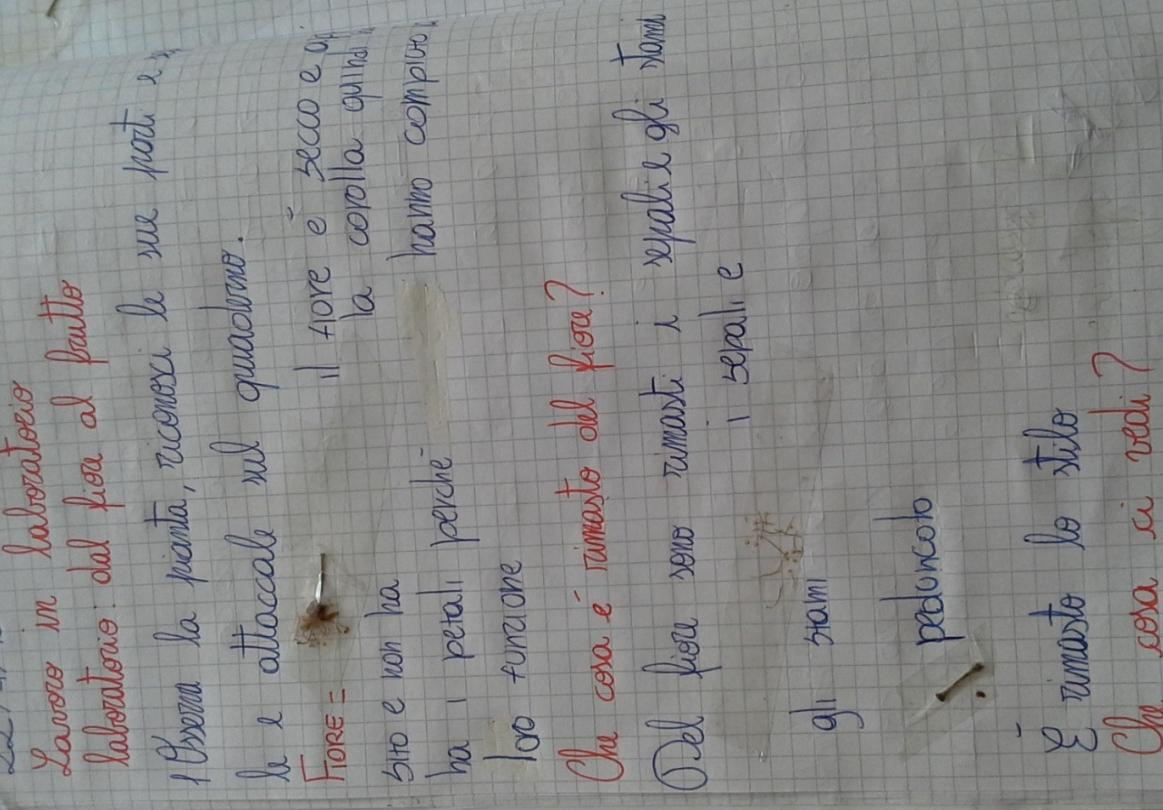 Lavoro in laboratorio
laboratorio: dal fiore al frutto
1) Osserva la pianta, riconosci le sue parti e
le e attaccale sul quaderno.
FIORE= il fiore è secco e
la corolla quindi
sito e non ha
ha i petali perché hanno compiuto
loro funzione
Che cosa è rimasto del fiore?
Del fiore sono rimasti i sepali e gli stami
i sepali e
gli stami
peduncolo
È rimasto lo stilo
Che cosa ci vedi?